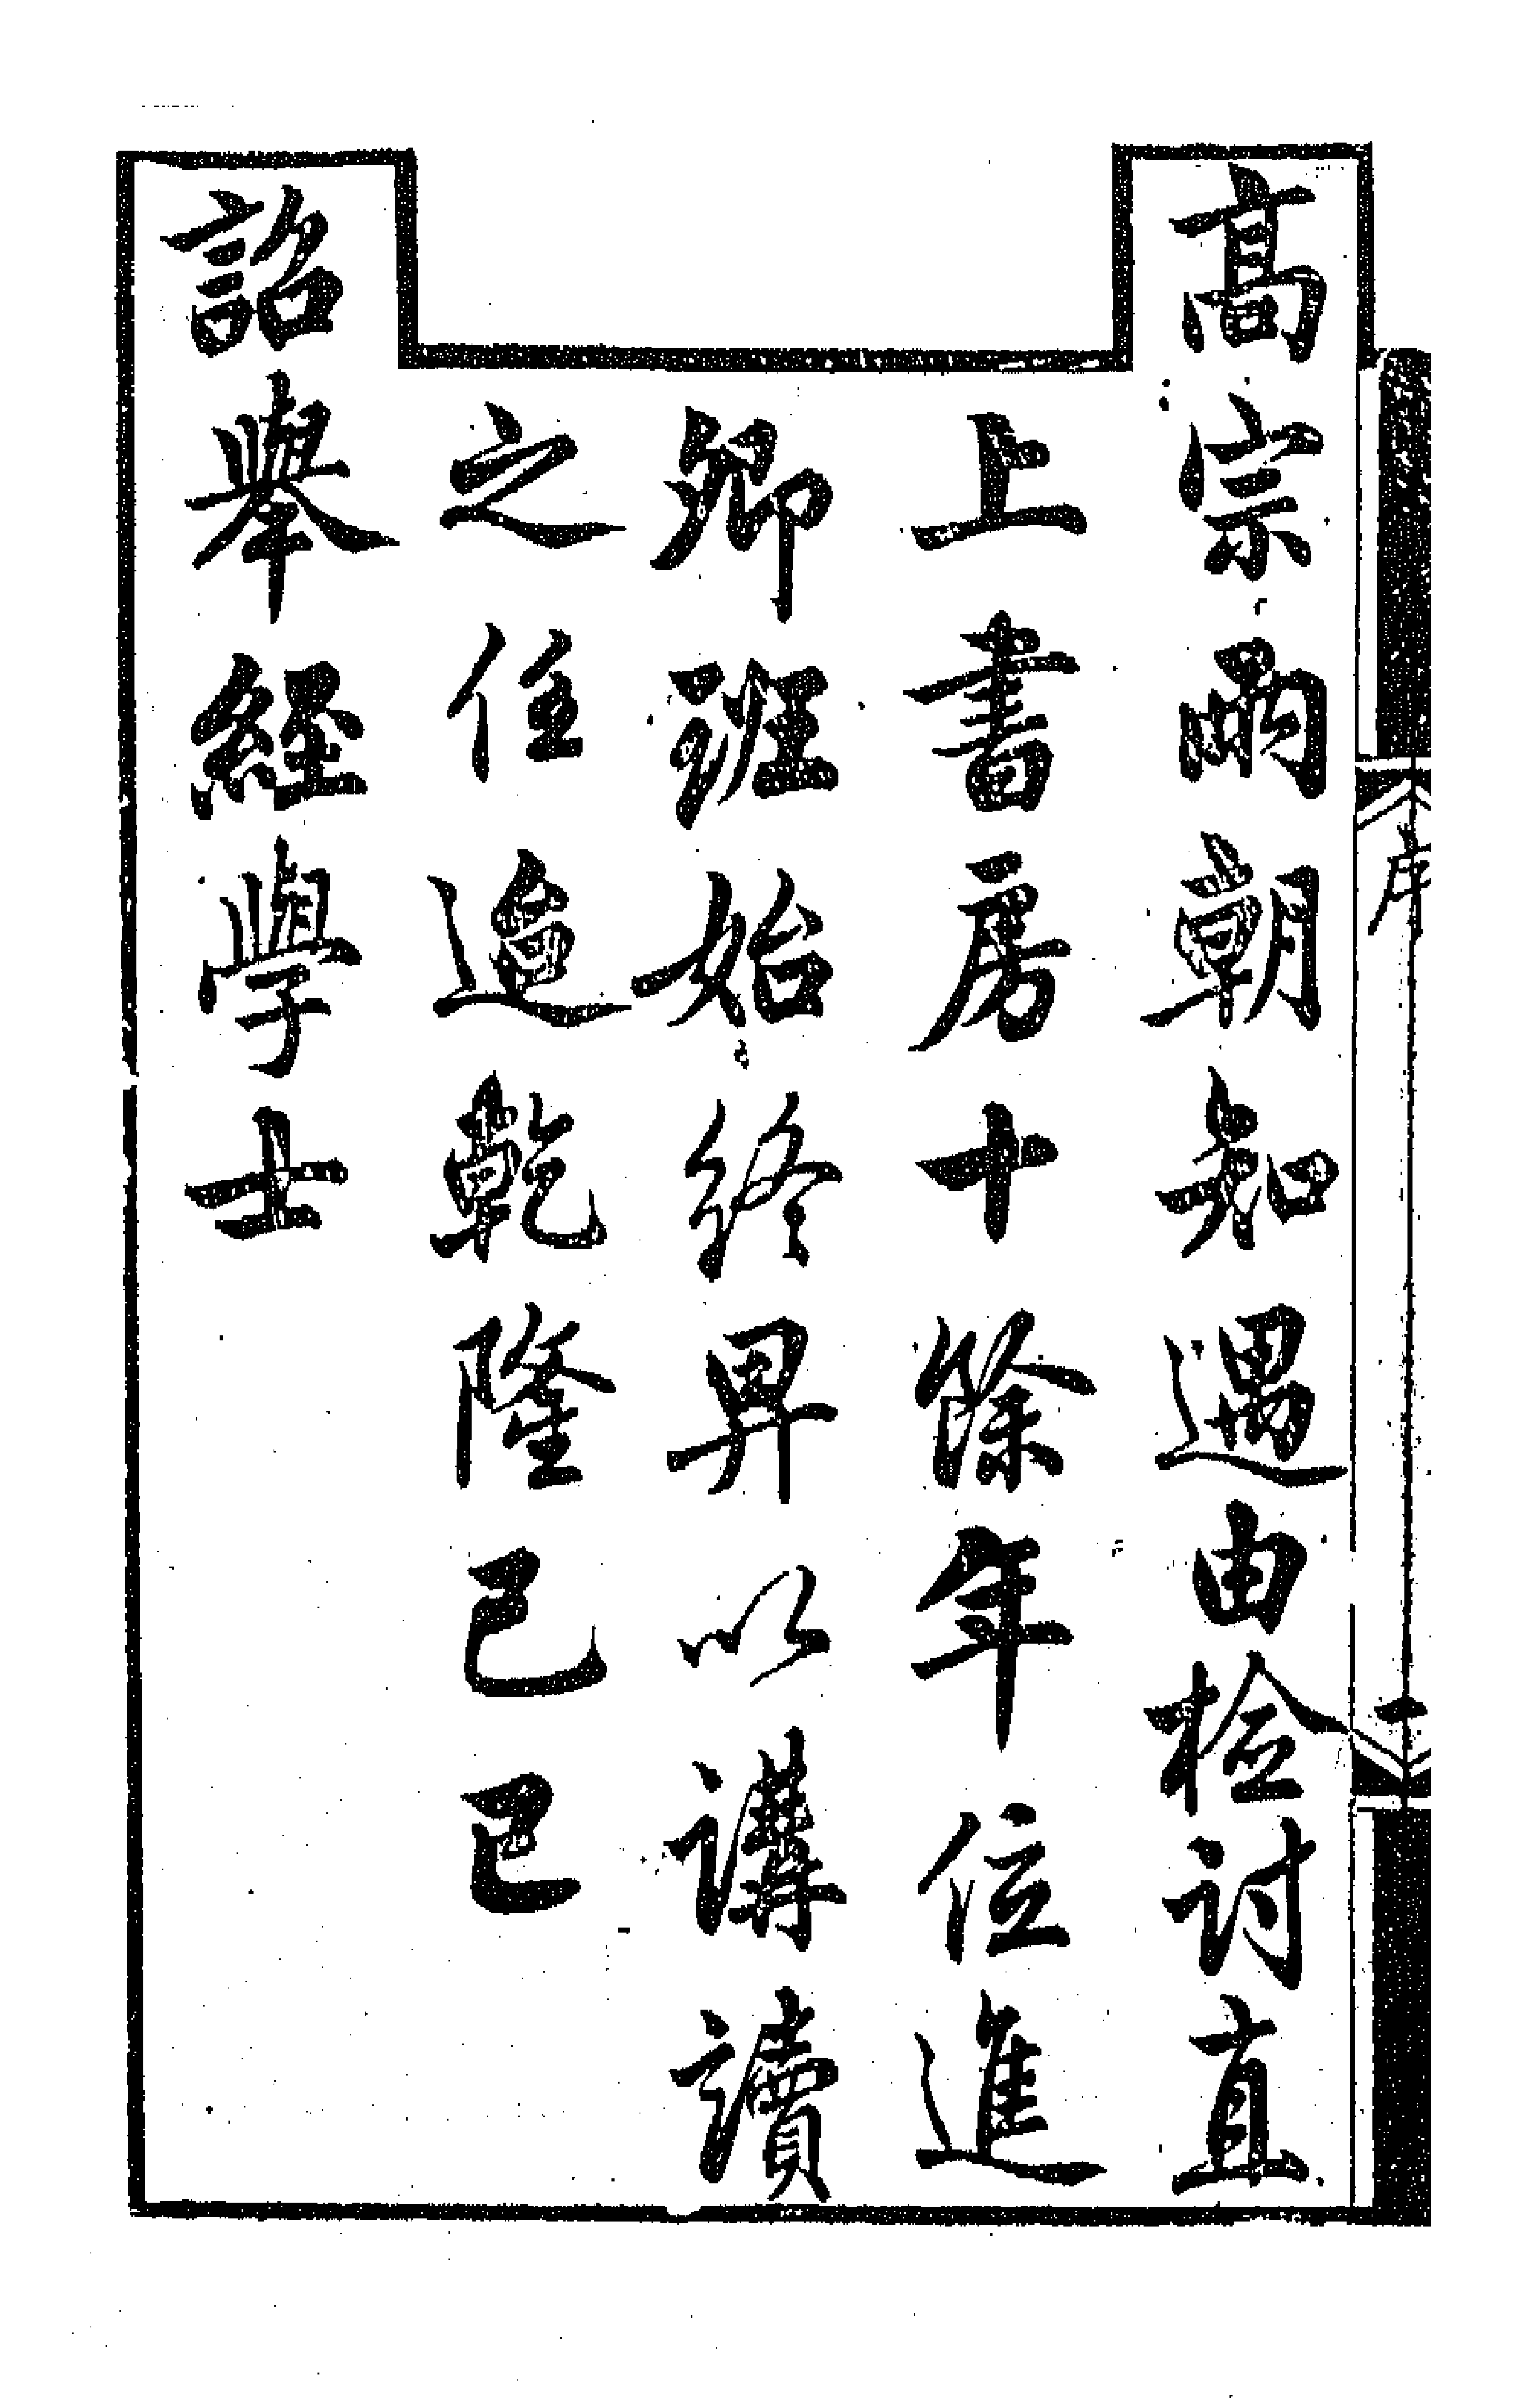 高宗兩朝知遇由檢討直
上書房十餘年位進
卿班始終畀以講讀
之任迨乾隆己巳
詔舉經學士
序